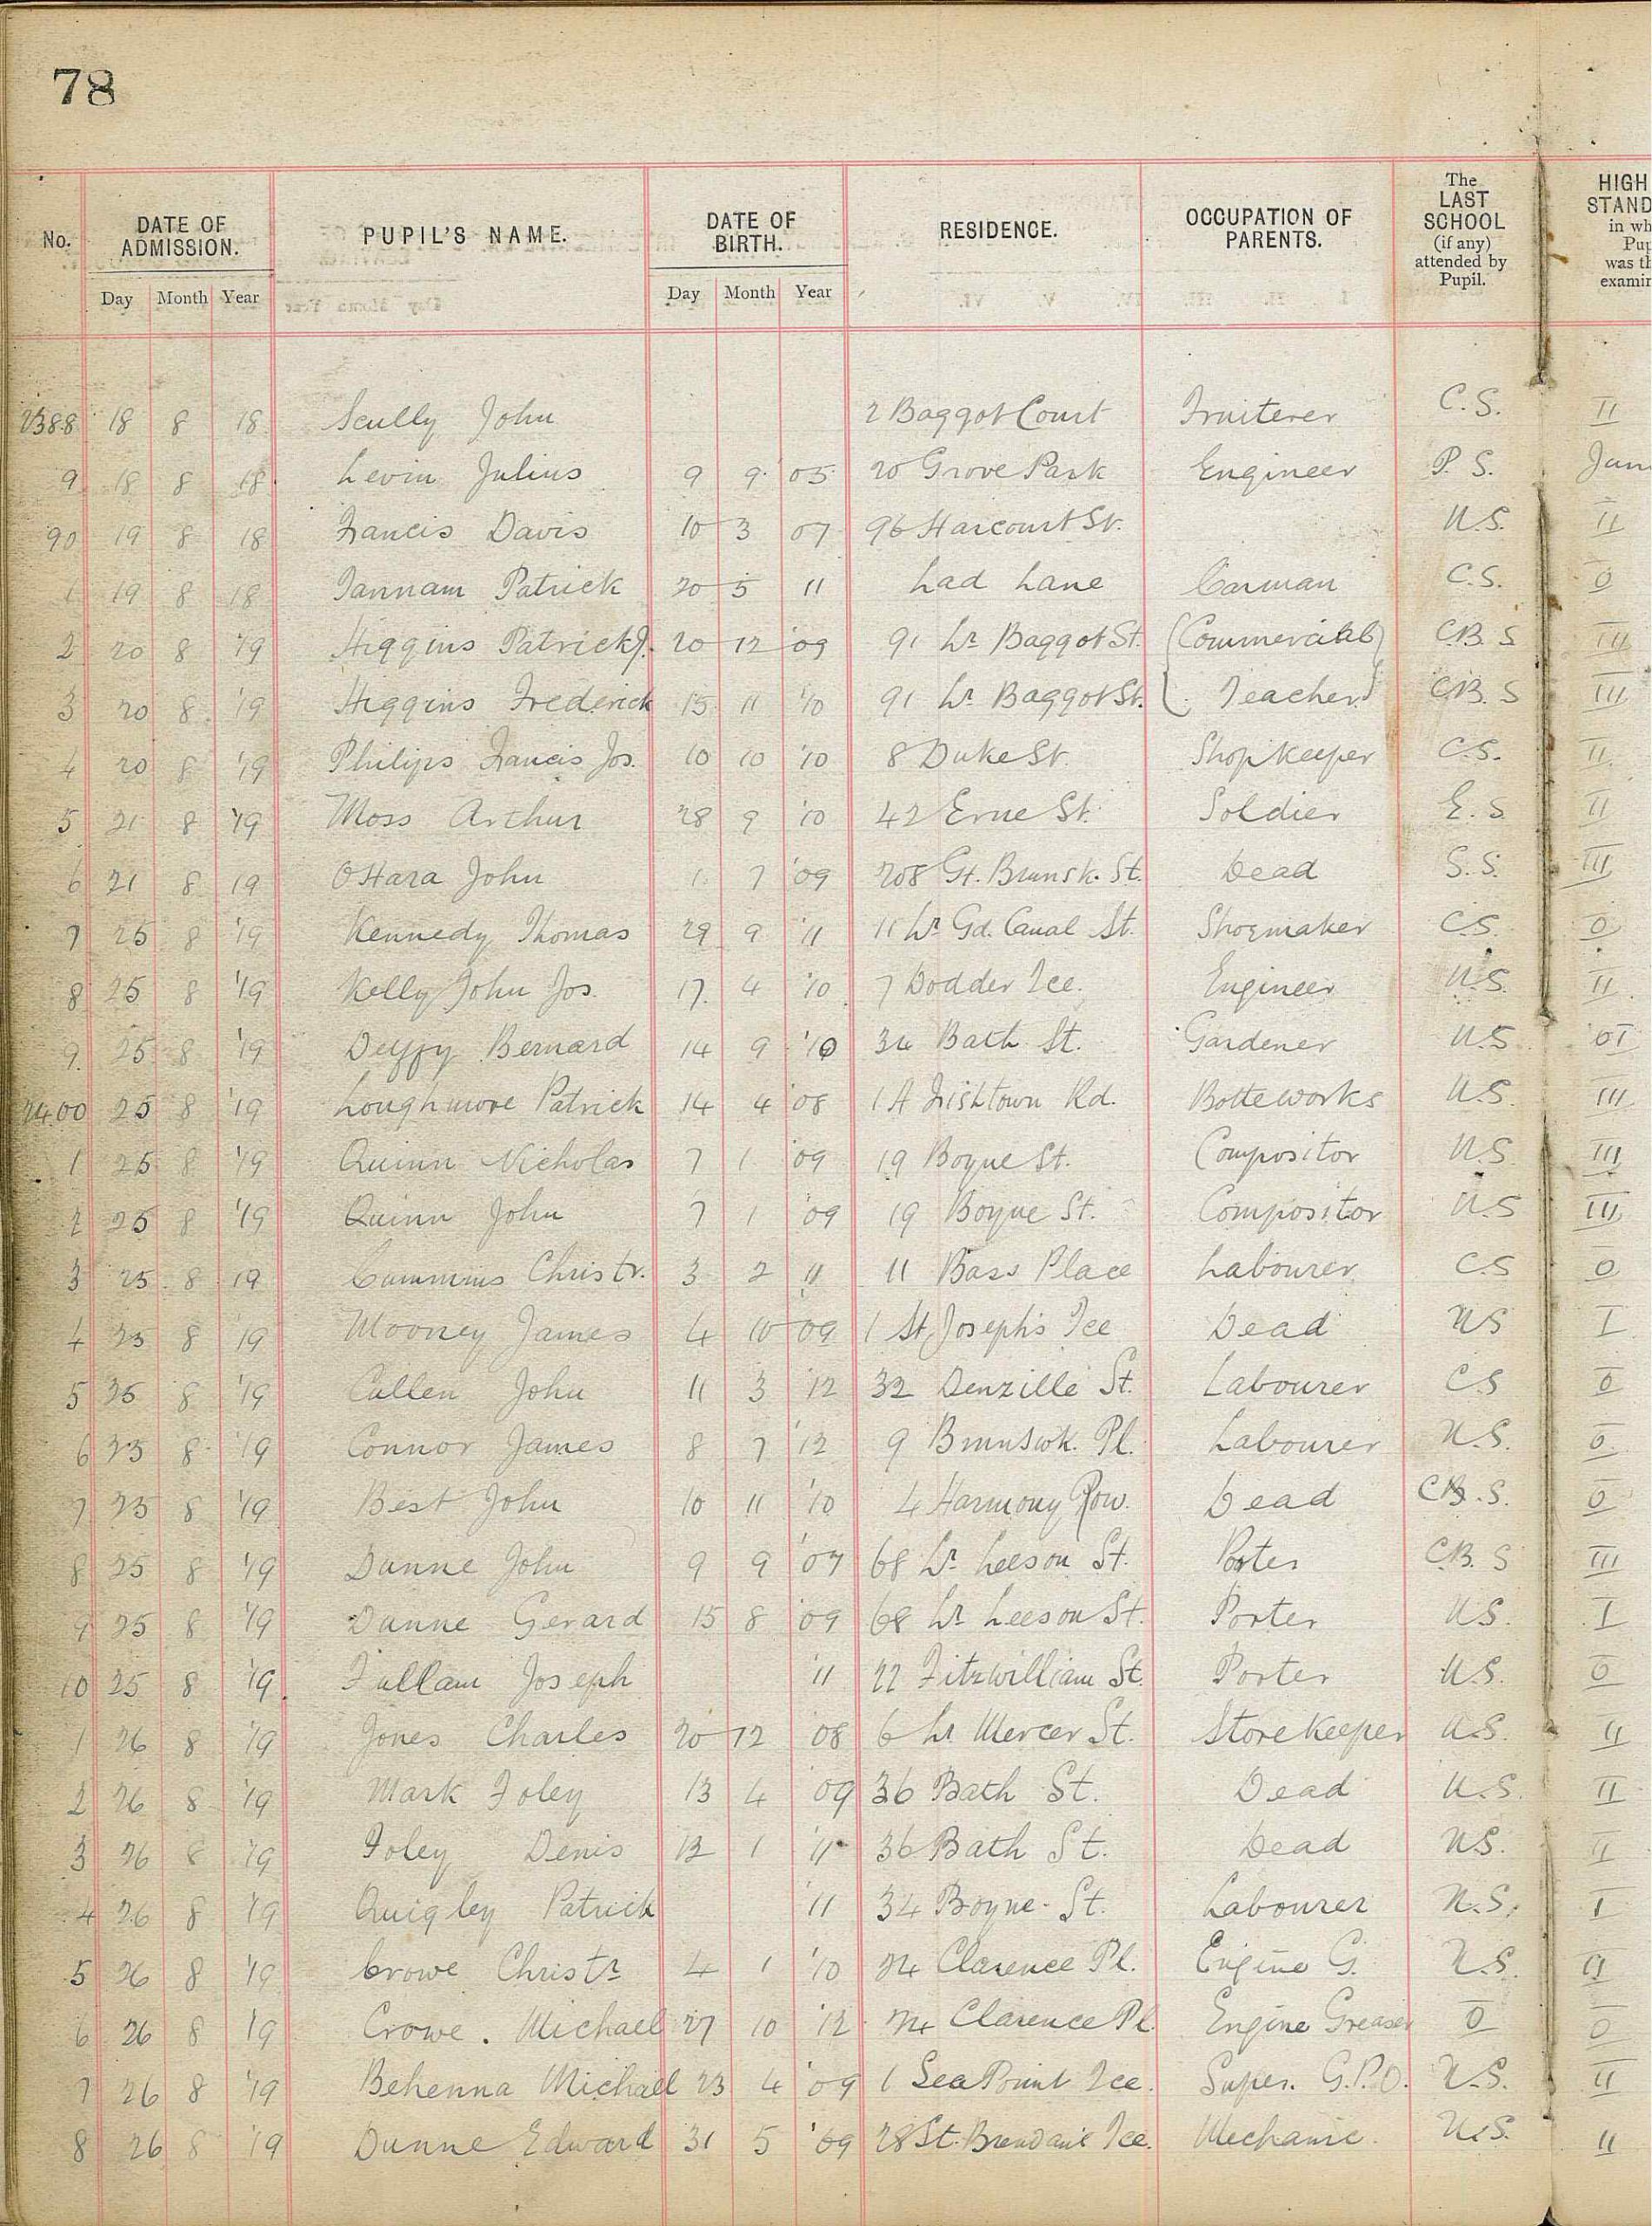 78
No. DATE OF ADMISSION. PUPIL'S NAME. DATE OF BIRTH. RESIDENCE. OCCUPATION OF PARENTS. The LAST SCHOOL (if any) attended by Pupil. HIGH STAND in wh Pup was th examin
Day Month Year Day Month Year
2388 18 8 18 Scully John 2 Baggot Court Fruiterer C.S. II
9 18 8 18 Levin Julius 9 9 05 20 Grove Park Engineer P.S. Jun
90 19 8 18 Francis Davis 10 3 07 96 Harcourt St. N.S. II
1 19 8 18 Fannam Patrick 20 5 11 Lad Lane Carman C.S. 0
2 20 8 '19 Higgins Patrick J. 20 12 '09 91 Lr. Baggot St. (Commercial) C.B.S III
3 20 8 '19 Higgins Frederick 15 11 '10 91 Lr. Baggot St. ( Teacher) C.B.S III
4 20 8 '19 Philips Francis Jos. 10 10 '10 8 Duke St. Shopkeeper C.S. II
5 21 8 '19 Moss Arthur 28 9 '10 42 Erne St. Soldier E.S II
6 21 8 19 O'Hara John 1 7 '09 208 Gt. Brunsk. St. Dead S.S. III
7 25 8 '19 Kennedy Thomas 29 9 '11 11 Lr. Gd. Canal St. Shoemaker C.S. 0
8 25 8 '19 Kelly John Jos. 17 4 '10 7 Dodder Tce. Engineer N.S. II
9 25 8 '19 Bernard 14 9 '10 34 Bath St. Gardener N.S 01
2400 25 8 '19 Loughmore Patrick 14 4 '08 1A Irishtown Rd. Botteworks N.S. III
1 25 8 '19 Quinn Nicholas 7 1 '09 19 Boyne St. Compositor N.S. III
2 25 8 '19 Quinn John 7 1 '09 19 Boyne St. Compositor N.S III
3 25 8 19 Cummins Christr. 3 2 11 11 Bass Place Labourer C.S 0
4 25 8 '19 Mooney James 4 10 09 1 St. Joseph's Tce Dead NS I
5 25 8 '19 Cullen John 11 3 '12 32 Denzille St. Labourer C.S 0
6 25 8 '19 Connor James 8 7 '12 9 Brunswk. Pl. Labourer N.S. 0
7 25 8 '19 Best John 10 11 '10 4 Harmony Row. Dead C.B.S. 0
8 25 8 '19 Dunne John 9 9 '07 68 Lr. Leeson St. Porter C.B.S III
9 25 8 '19 Dunne Gerard 15 8 '09 68 Lr. Leeson St. Porter N.S. I
10 25 8 '19 Fullam Joseph '11 22 Fitzwilliam St. Porter N.S. 0
1 26 8 '19 Jones Charles 20 12 '08 6 Lr. Mercer St. Storekeeper N.S. II
2 26 8 '19 Mark Foley 13 4 '09 36 Bath St. Dead N.S. II
3 26 8 '19 Foley Denis 12 1 '11 36 Bath St. Dead N.S. II
4 26 8 '19 Quigley Patrick '11 34 Boyne St. Labourer N.S. I
5 26 8 '19 Crowe Christr. 4 1 '10 24 Clarence Pl. Engine G. N.S. II
6 26 8 '19 Crowe. Michael 27 10 '12 24 Clarence Pl. Engine Greaser 0 0
7 26 8 '19 Behenna Michael 23 4 '09 1 Sea Point Tce. Super. G.P.O. N.S. II
8 26 8 '19 Dunne Edward 31 5 '09 28 St. Brendan's Tce. Mechanic. N.S. II